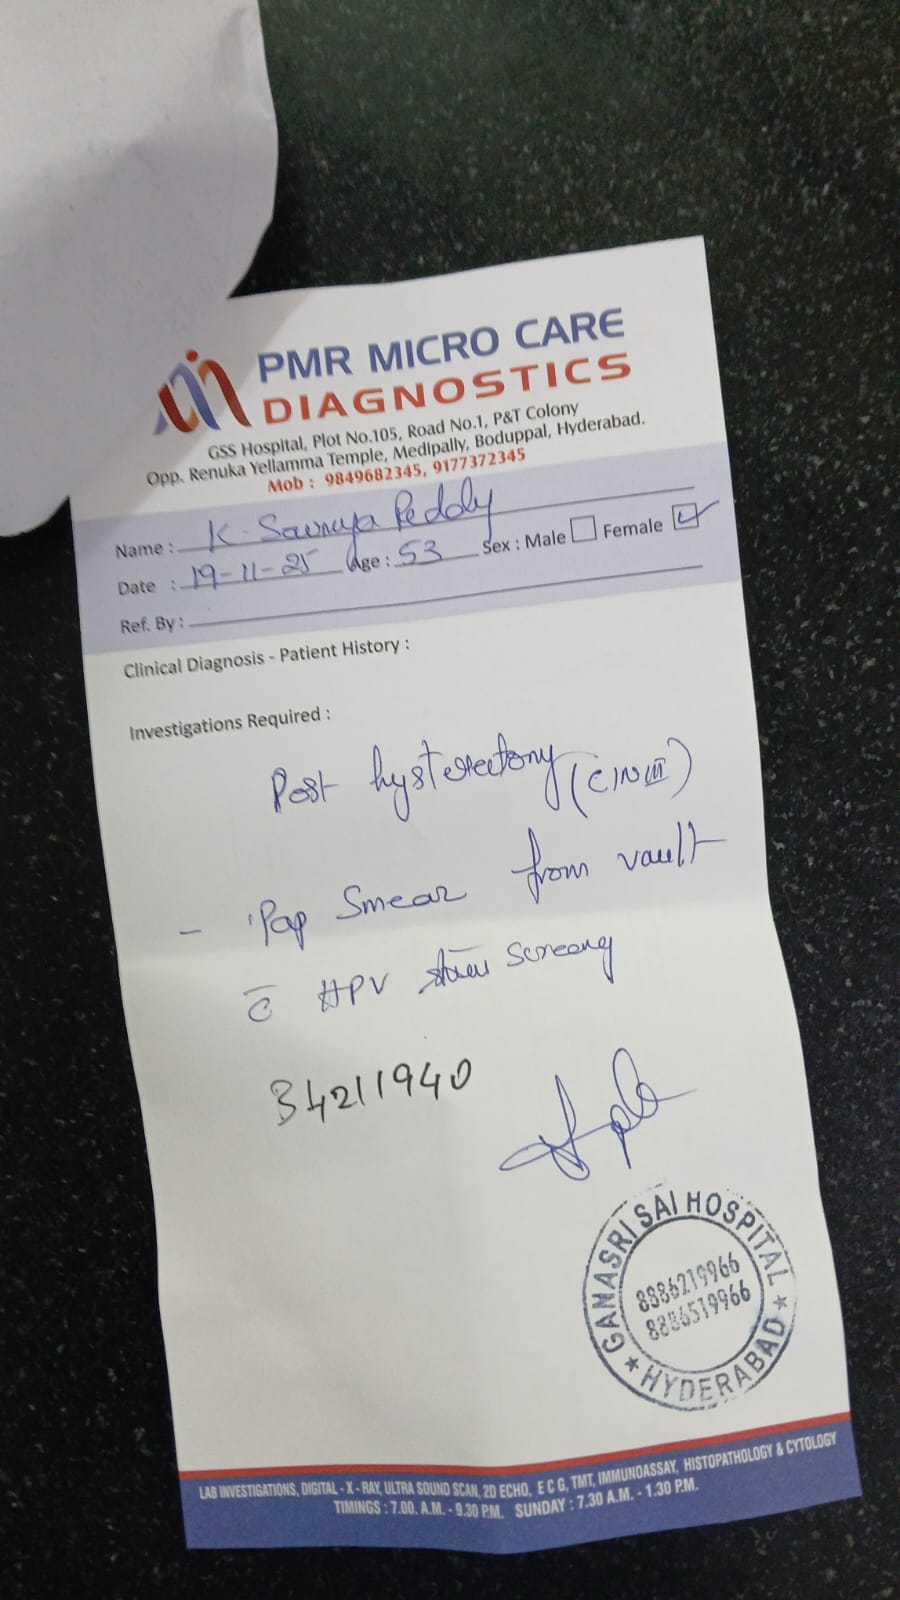 PMR MICRO CARE
DIAGNOSTICS
GSS Hospital, Plot No.105, Road No.1, P&T Colony
Opp. Renuka Yellamma Temple, Medipally, Boduppal, Hyderabad.
Mob : 9849682345, 9177372345
Name : K. Sowmya Reddy
Date : 19-11-25 Age : 53 Sex : Male Female
Ref. By :
Clinical Diagnosis - Patient History :
Investigations Required :
Post hysterectomy (CIN III)
- Pap Smear from vault
c̄ HPV screening
34211940
GANASRI SAI HOSPITAL
8886219966
8886519966
★ HYDERABAD ★
LAB INVESTIGATIONS, DIGITAL - X - RAY, ULTRA SOUND SCAN, 2D ECHO, E C G, TMT, IMMUNOASSAY, HISTOPATHOLOGY & CYTOLOGY
TIMINGS : 7.00. A.M. - 9.30 P.M. SUNDAY : 7.30 A.M. - 1.30 P.M.